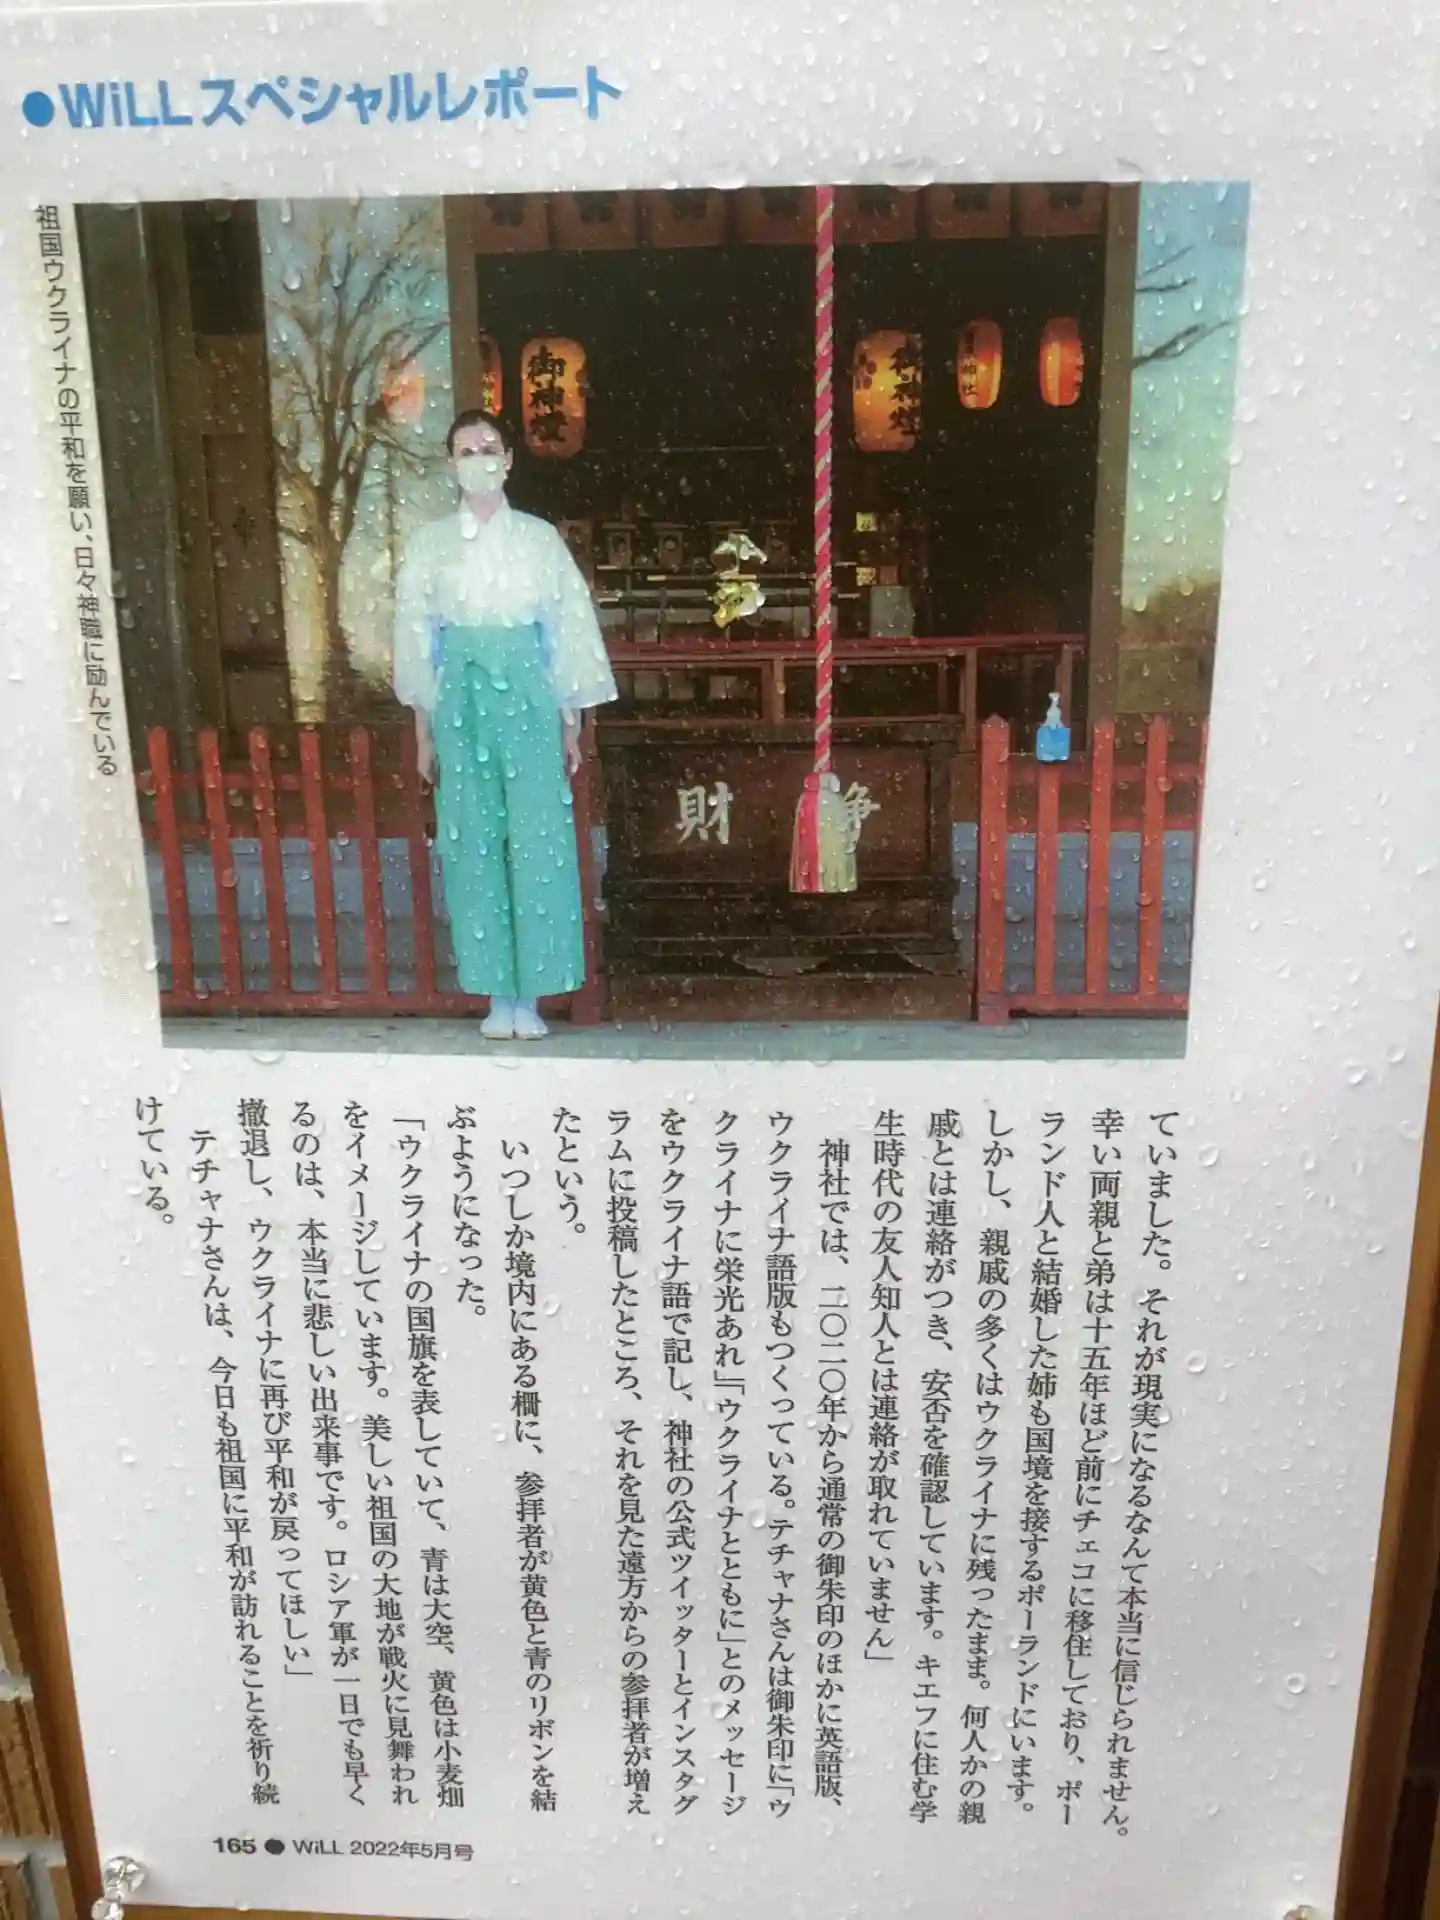 ●WiLLスペシャルレポート
祖国ウクライナの平和を願い、日々神職に励んでいる
御神燈
御神燈
神社
財 浄
ていました。それが現実になるなんて本当に信じられません。
幸い両親と弟は十五年ほど前にチェコに移住しており、ポー
ランド人と結婚した姉も国境を接するポーランドにいます。
しかし、親戚の多くはウクライナに残ったまま。何人かの親
戚とは連絡がつき、安否を確認しています。キエフに住む学
生時代の友人知人とは連絡が取れていません」
神社では、二〇二〇年から通常の御朱印のほかに英語版、
ウクライナ語版もつくっている。テチャナさんは御朱印に「ウ
クライナに栄光あれ」「ウクライナとともに」とのメッセージ
をウクライナ語で記し、神社の公式ツイッターとインスタグ
ラムに投稿したところ、それを見た遠方からの参拝者が増え
たという。
いつしか境内にある柵に、参拝者が黄色と青のリボンを結
ぶようになった。
「ウクライナの国旗を表していて、青は大空、黄色は小麦畑
をイメージしています。美しい祖国の大地が戦火に見舞われ
るのは、本当に悲しい出来事です。ロシア軍が一日でも早く
撤退し、ウクライナに再び平和が戻ってほしい」
テチャナさんは、今日も祖国に平和が訪れることを祈り続
けている。
165 ● WiLL 2022年5月号